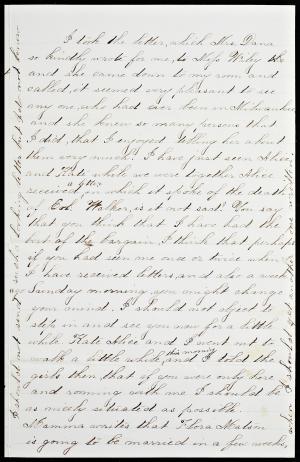 I took the letter, which Mrs. Dana
so kindly wrote for me, to Miss Wiley
and she came down to my room and
called, it seemed very pleasant to see
any one, who had ever been in Milwaukee
and she knew so many persons that
I did, that I enjoyed telling her about
them very much. I have just seen Alice
and Kate while we were together Alice
received a letter in which it spoke of the death
of Walker, is it not sad. You say
that you think that I have had the
best of the bargain, I think that perhaps
if you had seen me once or twice when
I have received letters, and also a week
Sunday morning, you might change
your mind. I should not object to
step in and see you now for a little
while. Kate Alice and I went out to
walk a little while this morning and I told the
girls then, that if you were only here
and rooming with me I should be
as nicely situated as possible.
Mamma writes that Flora Watson
is going to be married in a few weeks,
I should not send such a looking letter but
when I should get another one written